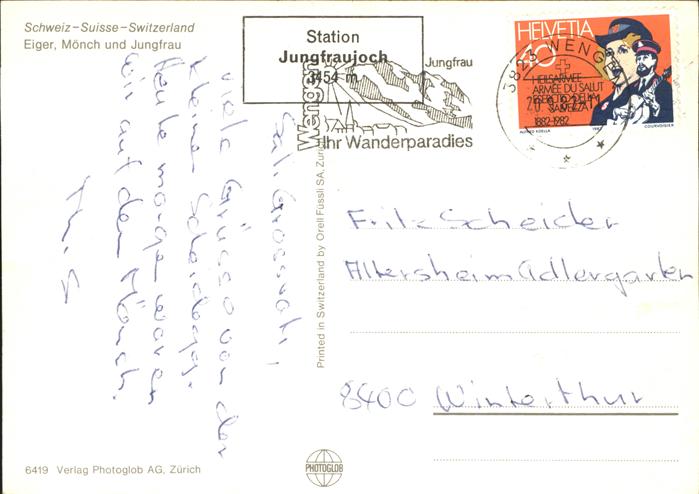 Schweiz-Suisse-Switzerland
Eiger, Mönch und Jungfrau
Station
Jungfraujoch
3454 m
Jungfrau
Wengen
Ihr Wanderparadies
3823 WENGEN
HELVETIA
40
HEILSARMEE
ARMÉE DU SALUT
1882-1982
COURVOISIER
Viele Grüsse von der
kleinen Scheidegg.
Heute morgen waren
wir auf dem Mönch.
Printed in Switzerland by Orell Füssli SA, Zürich
Fritz Scheider
Altersheim Adlergarten
8400 Winterthur
6419 Verlag Photoglob AG, Zürich
PHOTOGLOB